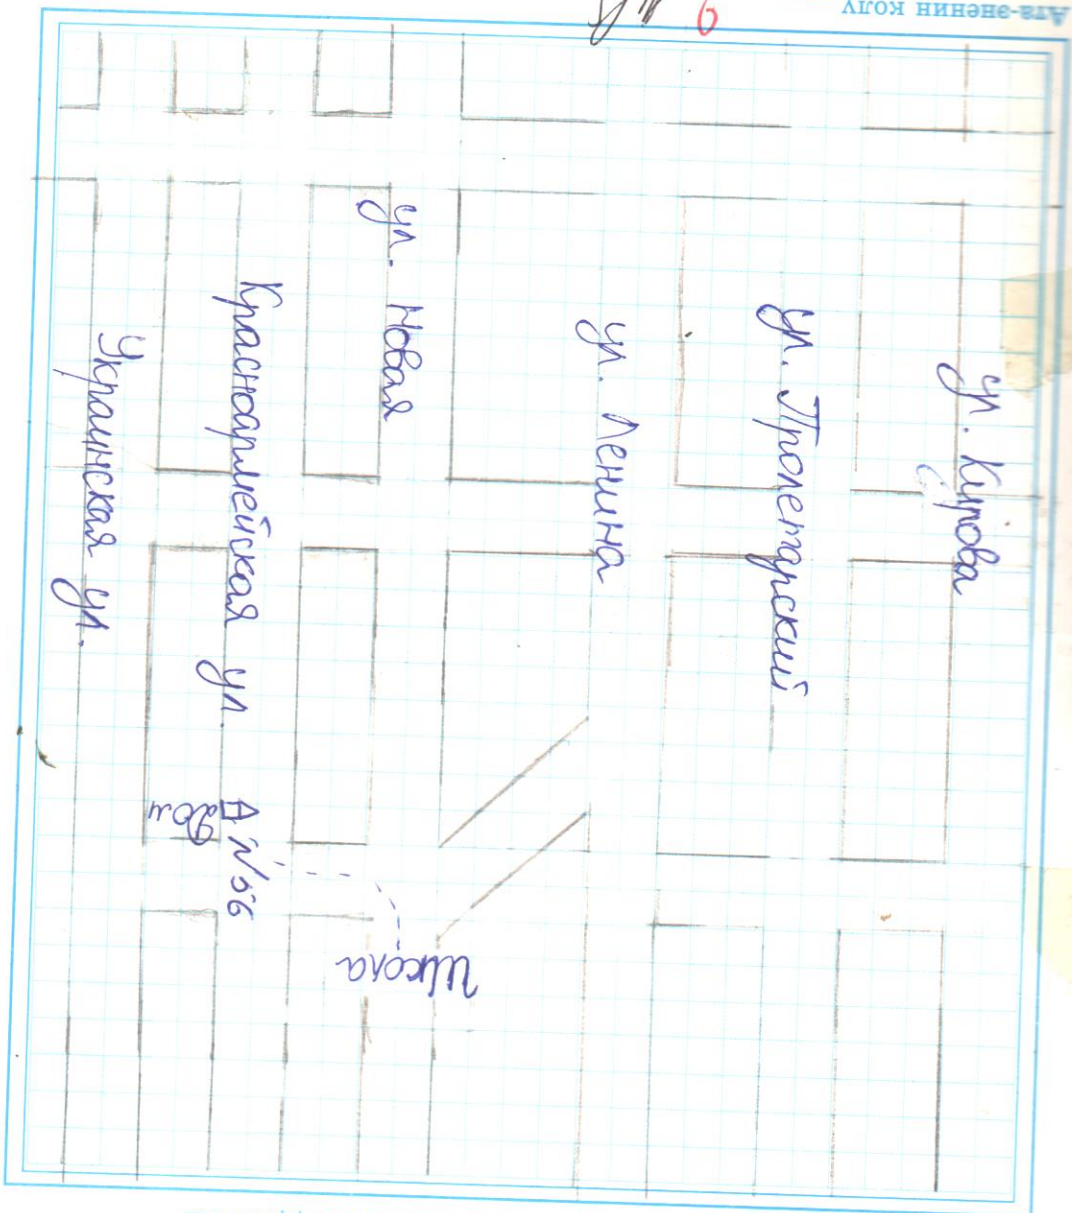 Ата-эненин колу
ул. Кирова
ул. Пролетарский
ул. Ленина
ул. Новая
Красноармейская ул
Украинская ул.
№56
Дом
Школа